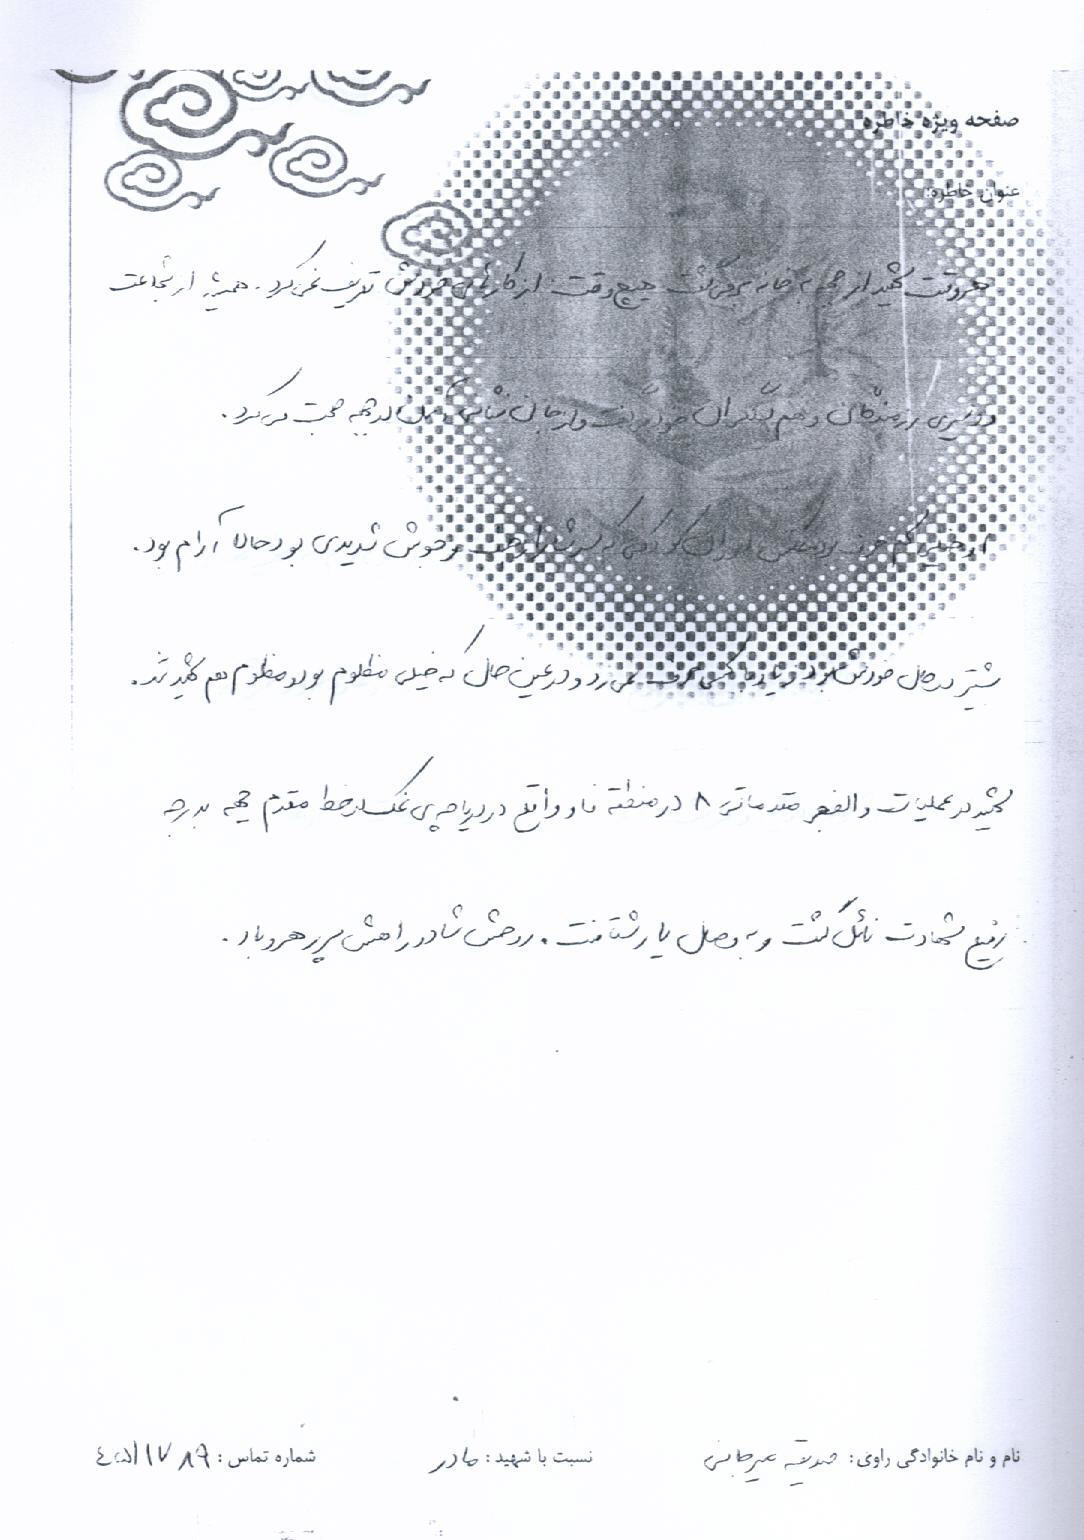 صفحه ویژه خاطره
عنوان خاطره:
هر وقت شهید از جبهه به خانه برمی‌گشت هیچ وقت از کارهای خودش تعریف نمی‌کرد. همیشه از شجاعت
و دلیری رزمندگان و هم سنگران خود می‌گفت و از جان فشانی در جبهه صحبت می‌کرد.
او خیلی کم حرف بود دوران کودکی که سرشار از جنب و جوش شدیدی بود حالا آرام بود.
بیشتر در حال خودش بود زیاد با کسی حرف نمی‌زد و در عین حال که خیلی مظلوم بود مظلوم هم شهید شد.
شهید در عملیات والفجر مقدماتی ۸ در منطقه فاو واقع در دریاچه‌ی نمک در خط مقدم جبهه به درجه
رفیع شهادت نائل گشت و به وصل یار شتافت. روحش شاد و راهش پر رهرو باد.
نام و نام خانوادگی راوی: صدیقه میرجانی
نسبت با شهید: مادر
شماره تماس: ٤٥١١٧٨٩